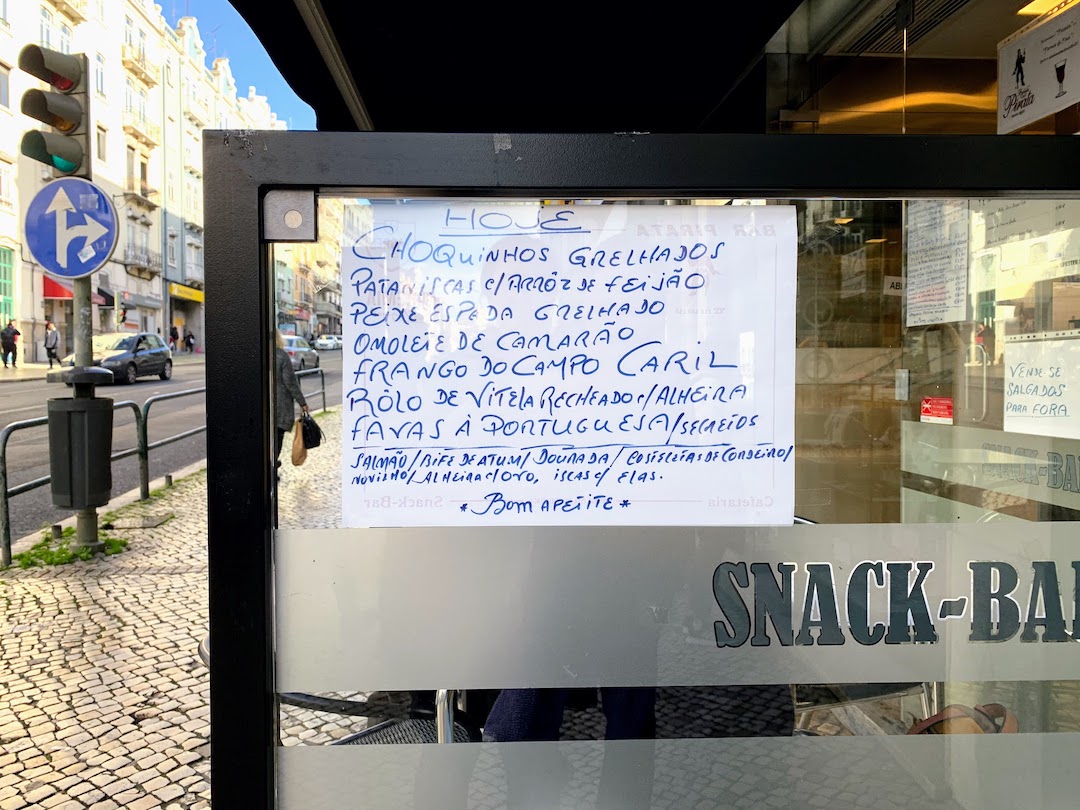 HOJE
CHOQUINHOS GRELHADOS
PATANISCAS C/ARRÔZ DE FEIJÃO
PEIXE ESPADA GRELHADO
OMOLETE DE CAMARÃO
FRANGO DO CAMPO CARIL
RÔLO DE VITELA RECHEADO C/ALHEIRA
FAVAS À PORTUGUESA/SECRETOS
SALMÃO/BIFE DE ATUM/DOURADA/COSTELETAS DE CORDEIRO/
NOVILHO/ALHEIRA C/OVO, ISCAS C/ ELAS.
* BOM APETITE *
BAR PIRATA
Cafetaria
Snack-Bar
SNACK-BA
Pirata
VENDE-SE
SALGADOS
PARA FORA
SNACK-BA